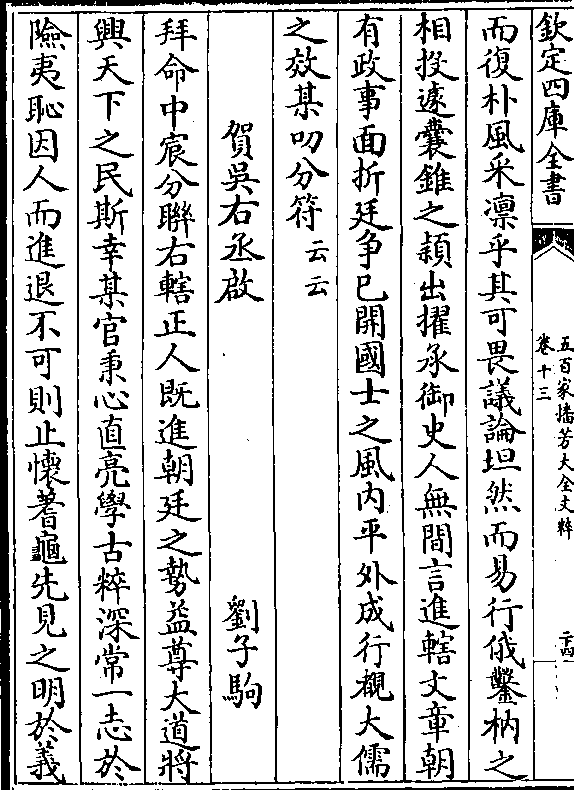 欽定四庫全書
五百家播芳大全文粹
卷十三
二十四
而復朴風采凛乎其可畏議論坦然而易行俄鑿枘之
相投遽囊錐之頴出擢承御史人無間言進轄文章朝
有政事面折廷争已開國士之風内平外成行覩大儒
之效某叨分符云云
賀吳右丞啟 劉子駒
拜命中宸分聯右轄正人既進朝廷之勢益尊大道將
興天下之民斯幸某官秉心直亮學古粹深常一志於
險夷恥因人而進退不可則止懐蓍龜先見之明於義